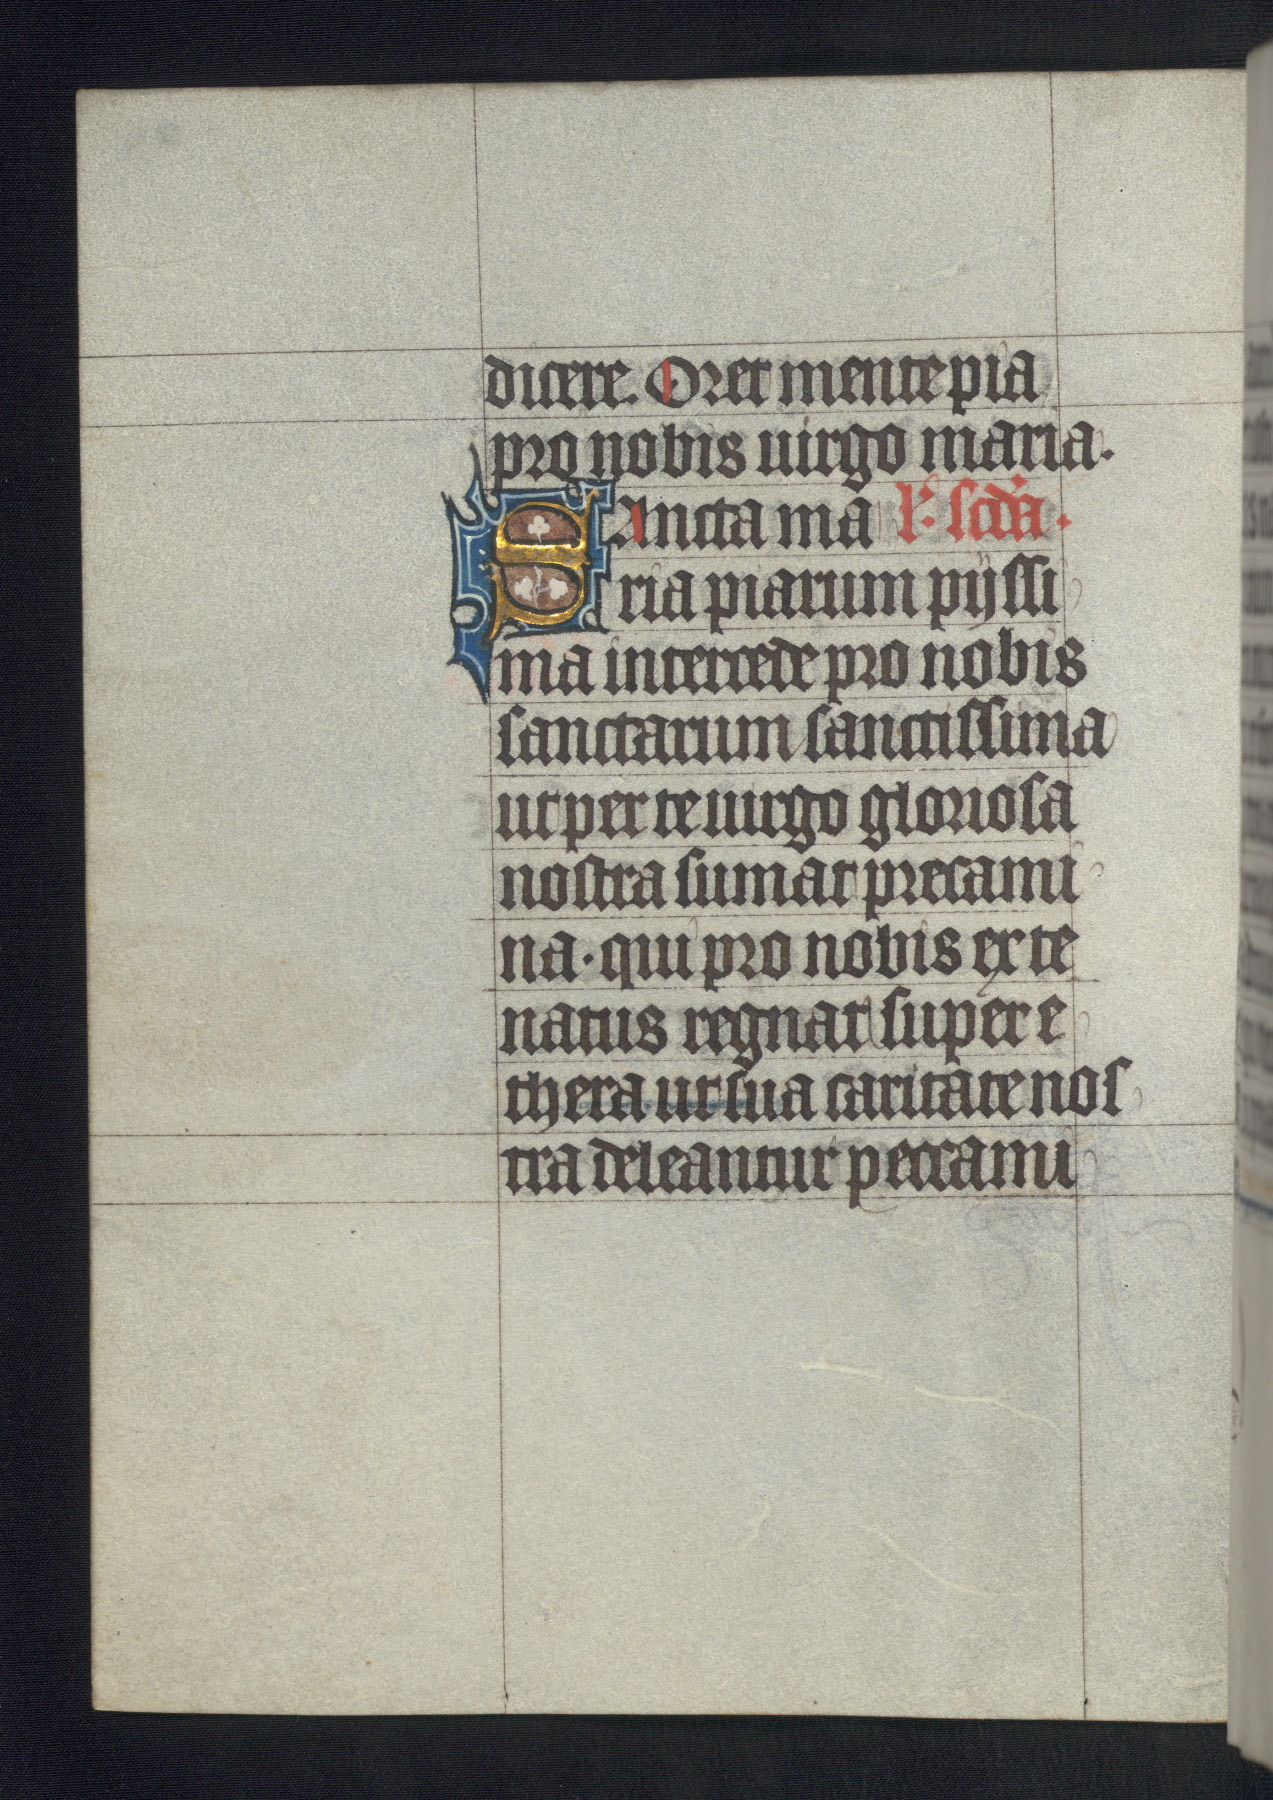 dicere. Oret mente pia
pro nobis uirgo maria.
Sancta ma l'. scd'a.
ria piarum pijssi
ma intercede pro nobis
sanctarum sanctissima
ut per te uirgo gloriosa
nostra sumat precami
na. qui pro nobis ex te
natus regnat super e
thera ut sua caritate nos
tra deleantur peccami